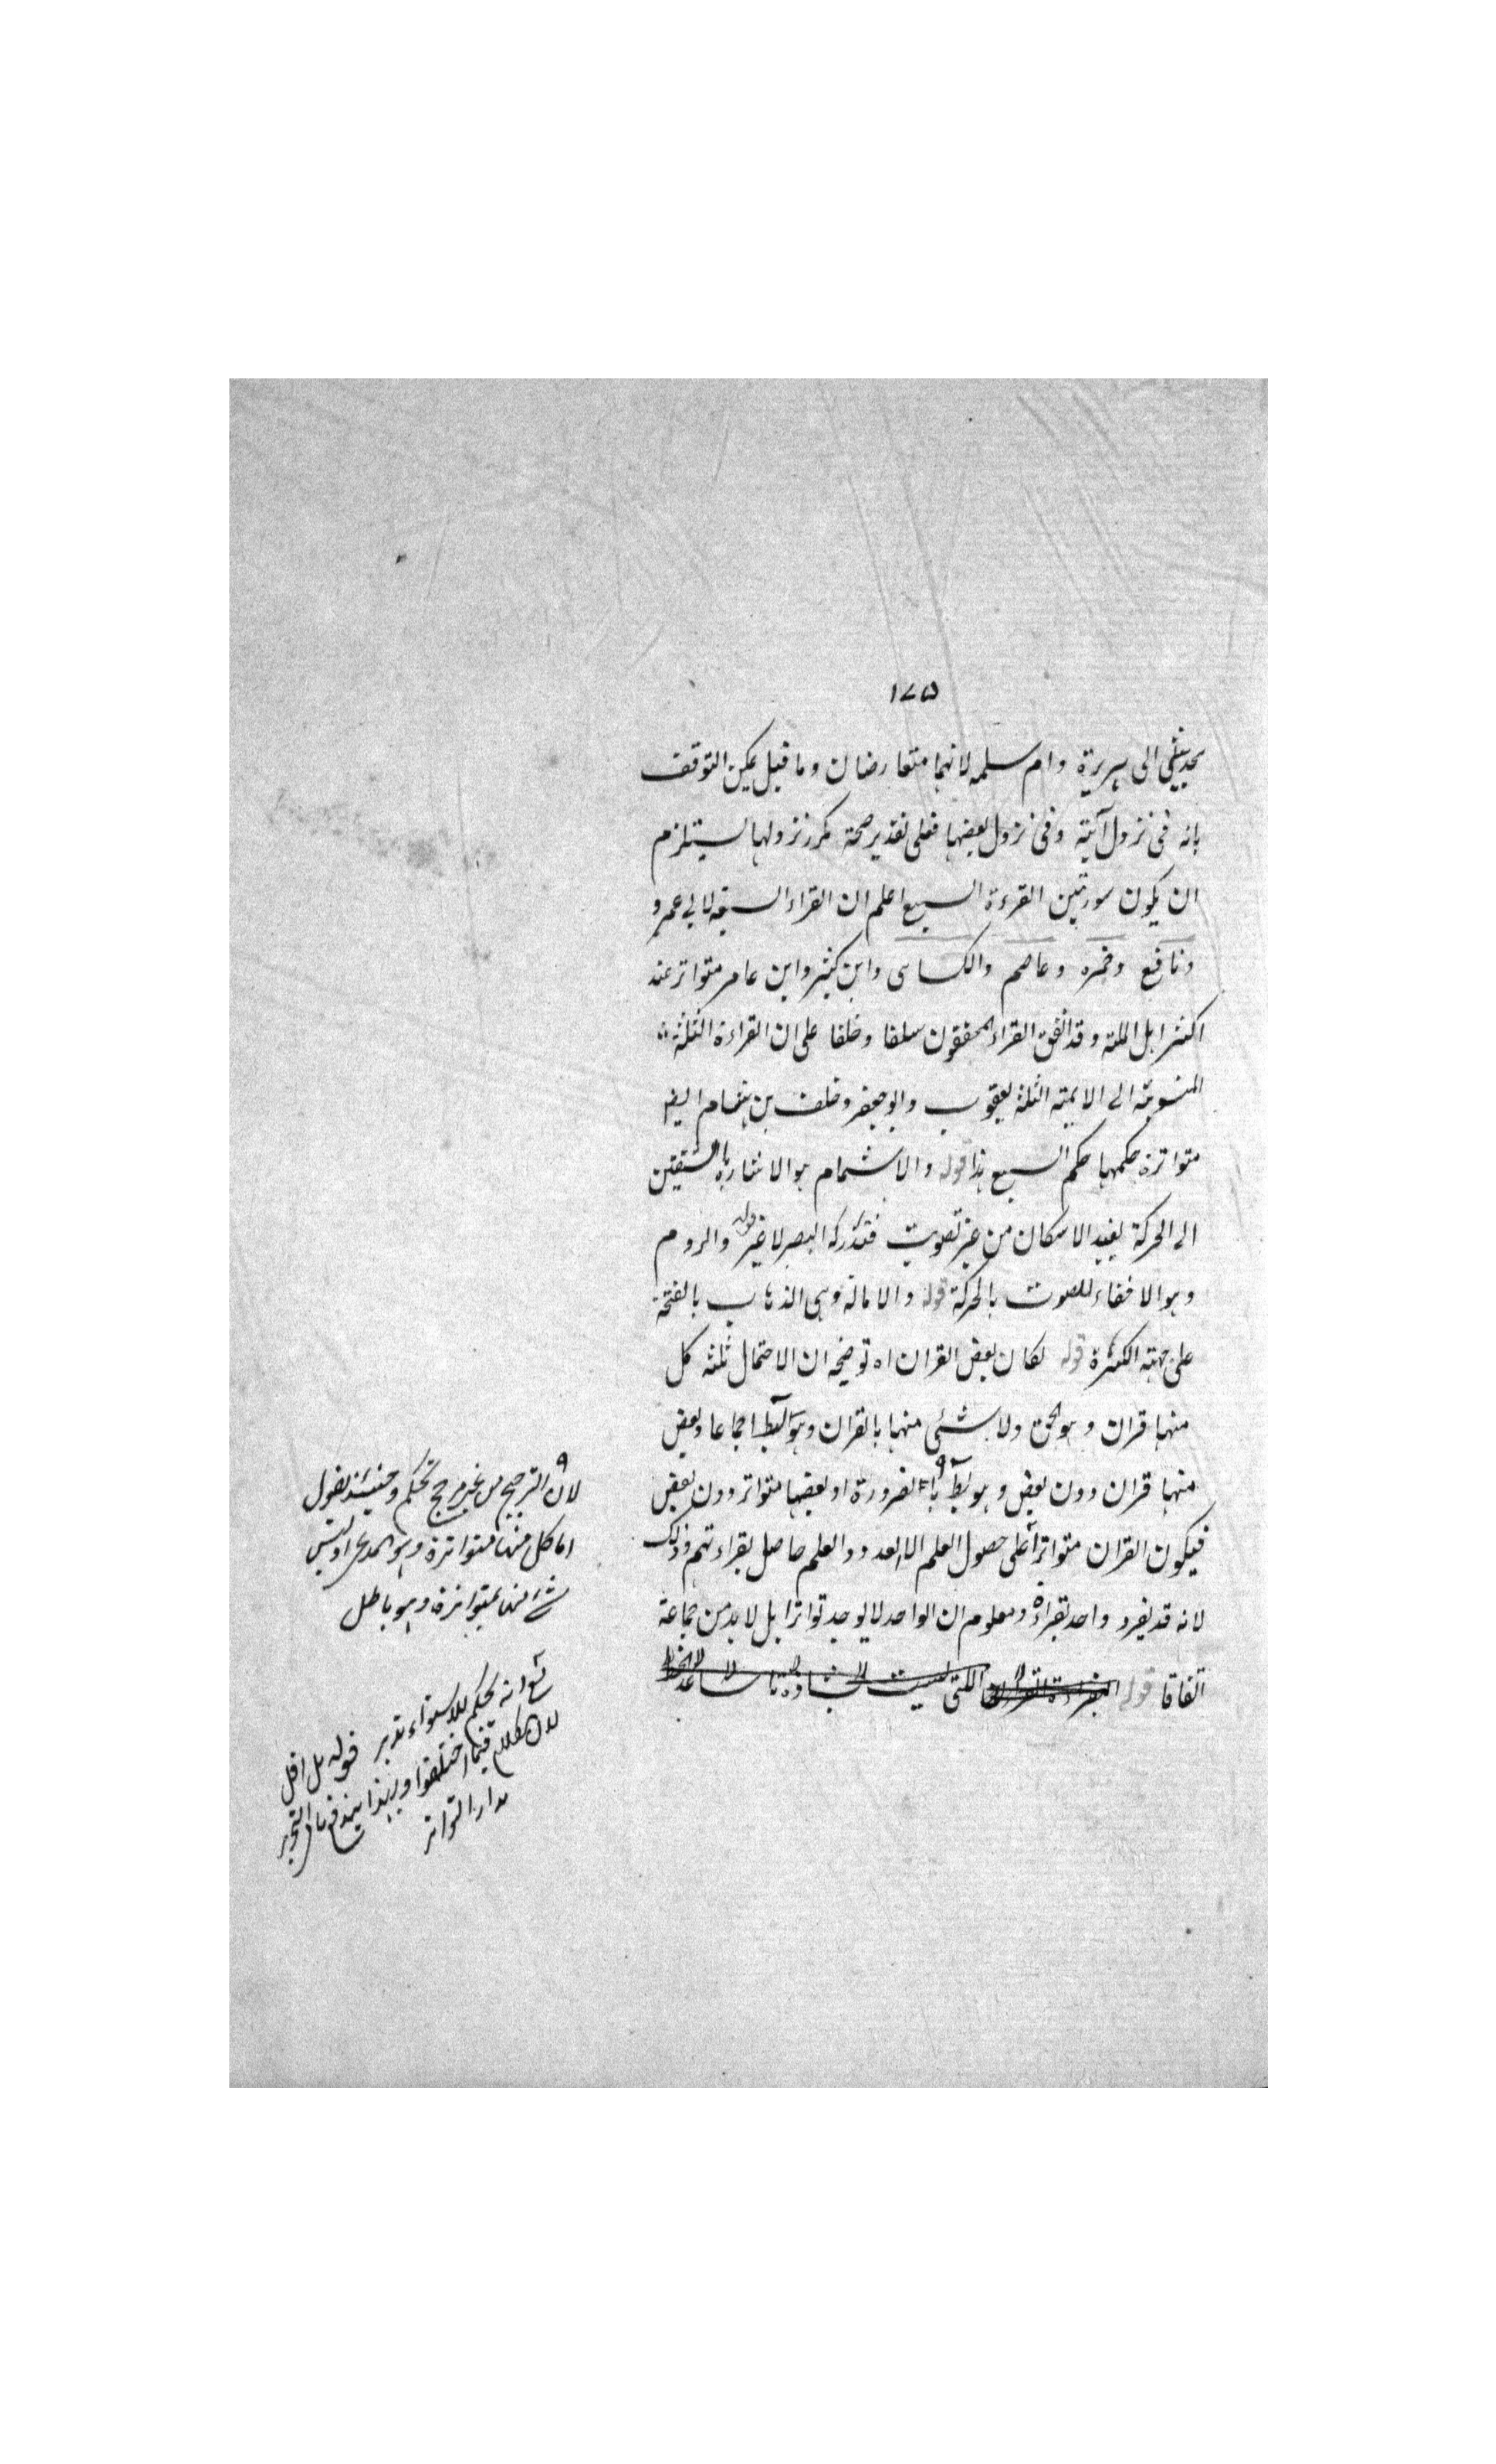 ١٧٥
بحديثي ابى هريرة وام سلمه لانهما متعارضان وما قيل يمكن التوقف
بانه فى نزول آية وفى نزول بعضها فعلى تقدير صحة تكرر نزولها يستلزم
ان يكون سورتين القراءة السبع اعلم ان القراء السبعة لابي عمرو
ونافع وحمزه وعاصم والكسائى وابن كثير وابن عامر متواتر عند
اكثر اهل الملة وقد اتفق القراء المحققون سلفا وخلفا على ان القراءة الثلثة
المنسوبة الى الايمة الثلثة يعقوب وابو جعفر وخلف بن هشام ايضا
متواترة حكمها حكم السبع هذا قوله والاشمام هو الاشارة بالشفتين
الى الحركة بعيد الاسكان من غير تصويت فتدركه البصر لا غير قوله والروم
وهو الاخفاء للصوت بالحركة قوله والامالة وهى الذهاب بالفتحة
على جهة الكسرة قوله لكان بعض القران اه توضيحه ان الاحتمال ثلثه كل
منها قران وهو الحق ولا شئ منها بالقران وهو بط اجماعا وبعض
منها قران دون بعض وهو بط بالضرورة او بعضها متواتر دون بعض
فيكون القران متواترا على حصول العلم لا العدد والعلم حاصل بقراءتهم وذلك
لانه قد يفرد واحد بقراءة ومعلوم ان الواحد لا يوجد تواترا بل لا بد من جماعة
اتفاقا قوله القراءة التى ليست الشاذة
لان الترجيح من غير مرجح تحكم وحينئذ نقول
اما كل منها متواترة وهو المدعى او ليس
شئ منها بمتواترة وهو باطل
انه تحكم للاستواء تدبر قوله بل اقل
لان الكلام فيما اختلفوا وبهذا يندفع ما
مدار التواتر